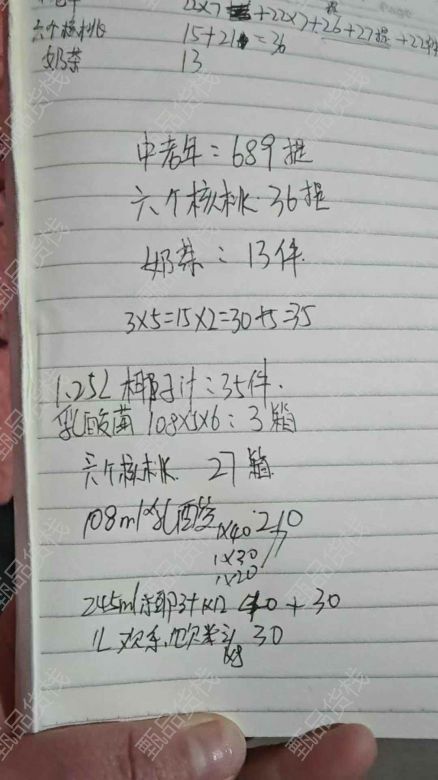 22×7 +22×7+26+27提+22件
六个核桃 15+21=36
奶茶 13
中老年:689提
六个核桃·36提
奶茶:13件
3×5=15×2=30+5=35
1.25L 椰子汁:35件.
乳酸菌 108×5×6:3箱
六个核桃 27箱
108ml乳酸 1×40 210
1×30
1×20
245ml 椰汁 1×12 +30
1L 欢乐 30
1×8
甄品货栈